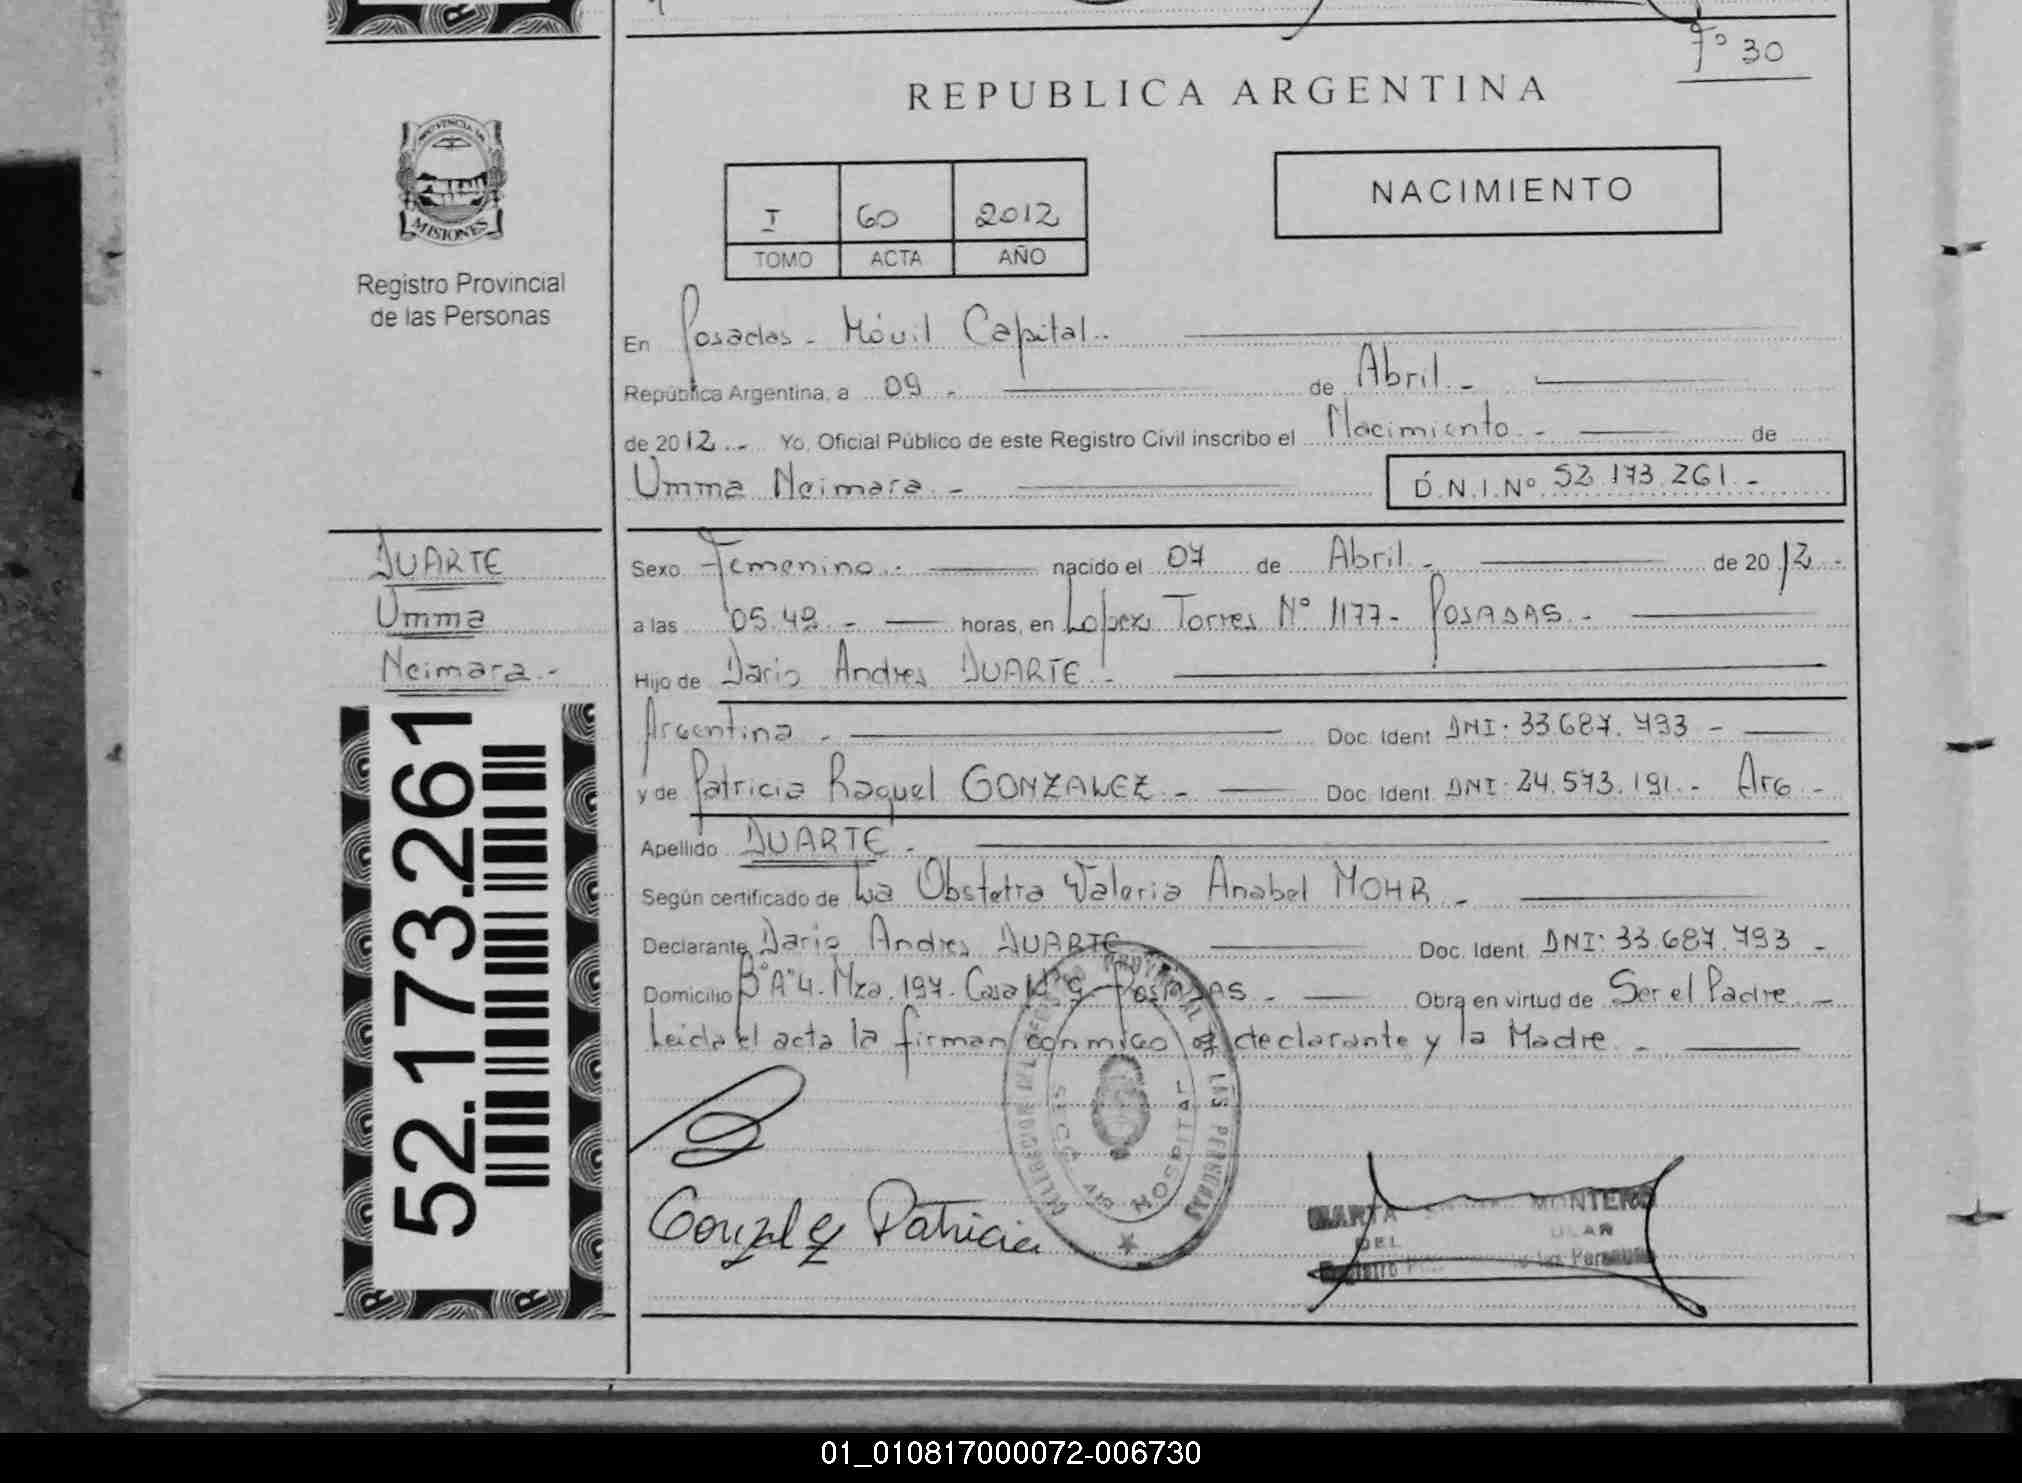 Fº 30
REPUBLICA ARGENTINA
PROVINCIA DE
MISIONES
Registro Provincial
de las Personas
I 60 2012
TOMO ACTA AÑO
NACIMIENTO
En Posadas - Móvil Capital.
República Argentina, a 09 - de Abril -
de 2012 - Yo, Oficial Público de este Registro Civil inscribo el Nacimiento - de
Umma Neimara - D.N.I.Nº 52.173.261 -
DUARTE
Umma
Neimara -
Sexo Femenino - nacido el 07 de Abril - de 2012 -
a las 05.48 - horas, en Lopez Torres Nº 1177 - POSADAS -
Hijo de Dario Andres DUARTE -
Argentina - Doc. Ident DNI: 33.687.793 -
y de Patricia Raquel GONZALEZ - Doc. Ident. DNI: 24.573.191 - Arg -
Apellido DUARTE -
Según certificado de La Obstetra Valeria Anabel MOHR -
Declarante Dario Andres DUARTE Doc. Ident. DNI: 33.687.793 -
Domicilio Bº A"4 - Mza. 197 - Casa Nº 9 - POSADAS - Obra en virtud de Ser el Padre -
Leida el acta la firman conmigo el declarante y la Madre -
52.173.261
DE LAS PERSONAS
HOSPITAL
Gonzalez Patricia
MARTA MONTERO
DEL
Registro de las Personas
01_010817000072-006730